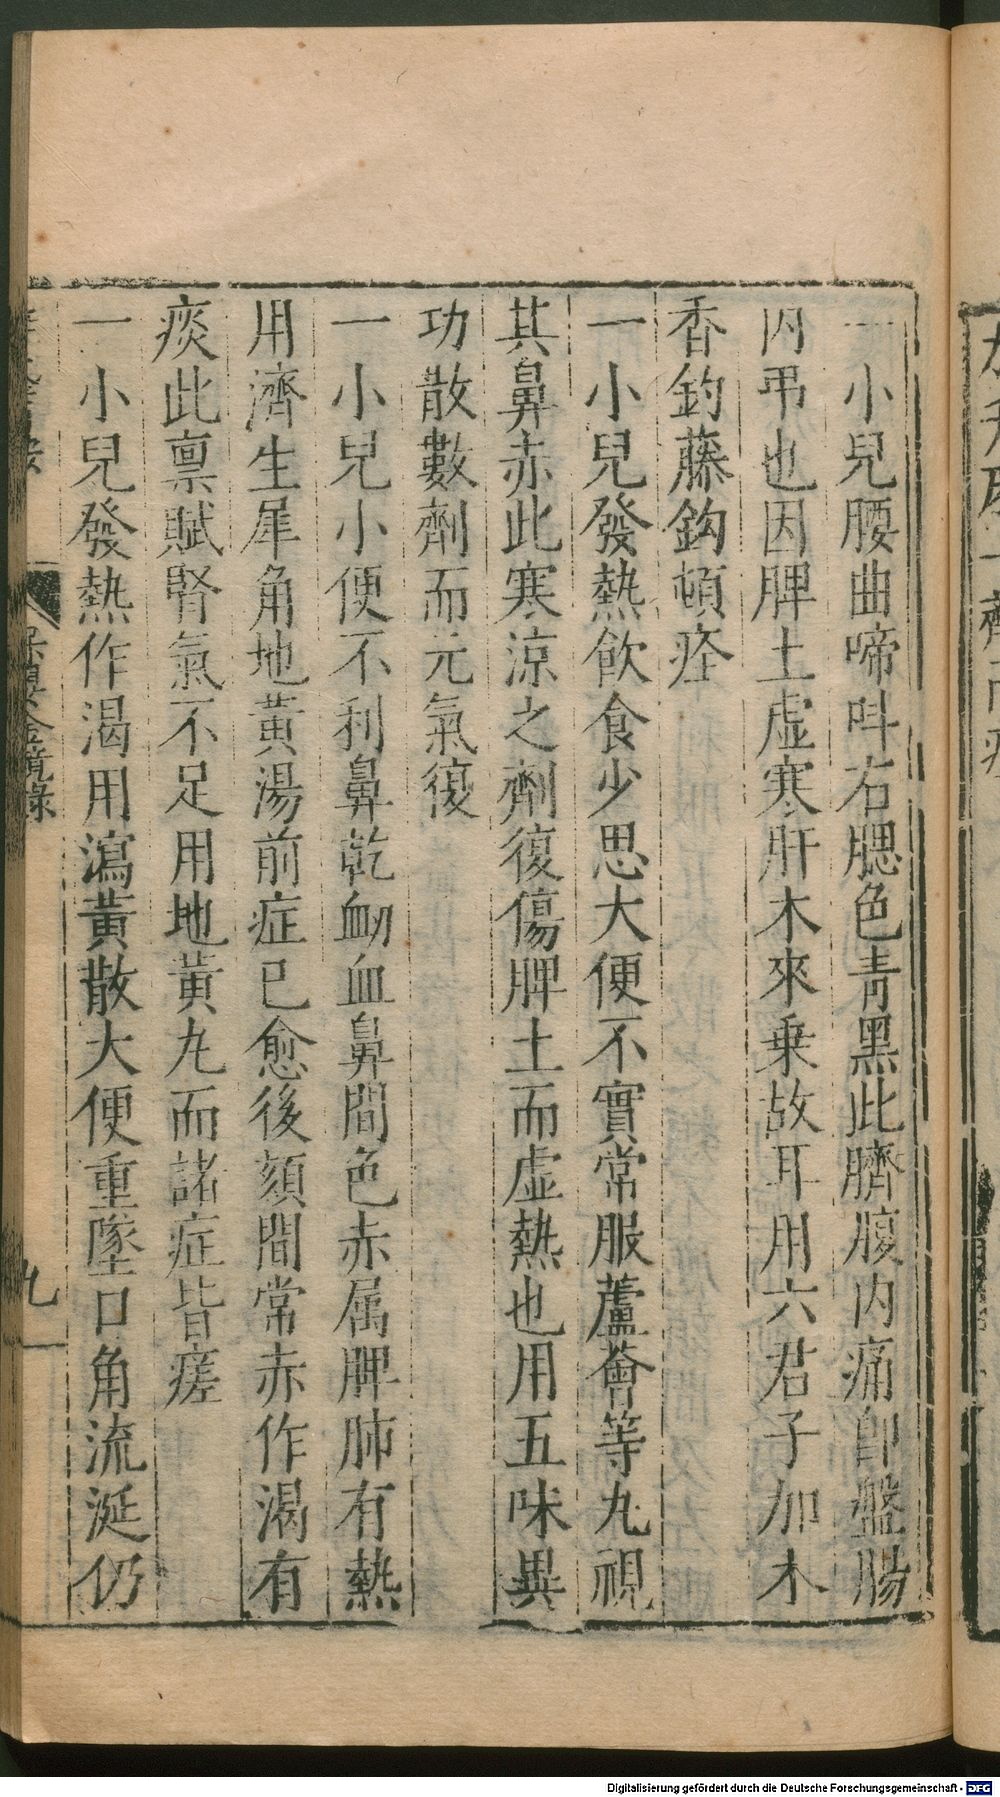 一小兒腰曲啼呌右腮色青黑此臍腹内痛即盤腸
内吊也因脾土虛寒肝木來乗故耳用六君子加木
香釣藤鈎頓痊
一小兒發熱飲食少思大便不實常服蘆薈等丸視
其鼻赤此寒涼之劑復傷脾土而虛熱也用五味異
功散數劑而元氣復
一小兒小便不利鼻乾衂血鼻間色赤属脾肺有熱
用濟生犀角地黃湯前症已愈後頦間常赤作渴有
痰此禀賦腎氣不足用地黃丸而諸症皆瘥
一小兒發熱作渴用瀉黃散大便重墜口角流涎仍
保嬰金鏡錄
九
Digitalisierung gefördert durch die Deutsche Forschungsgemeinschaft - DFG